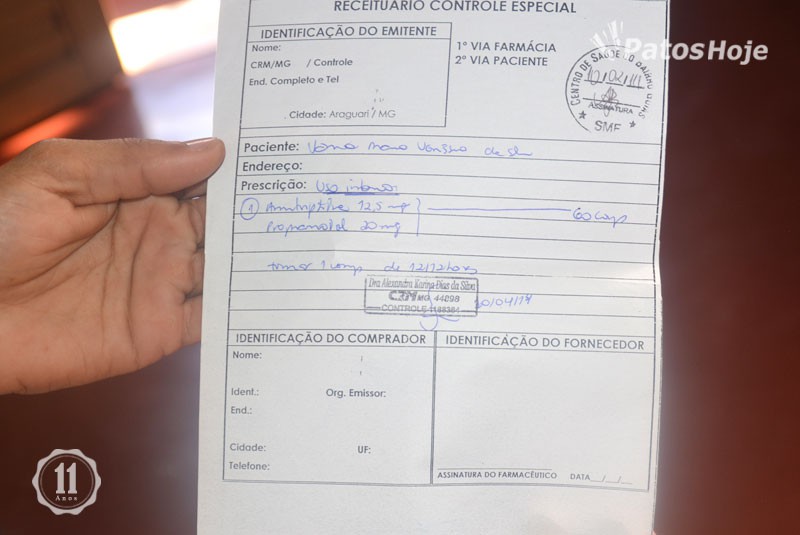 RECEITUÁRIO CONTROLE ESPECIAL
PatosHoje
IDENTIFICAÇÃO DO EMITENTE
Nome:
CRM/MG / Controle
End. Completo e Tel
Cidade: Araguari / MG
1º VIA FARMÁCIA
2º VIA PACIENTE
CENTRO DE SAÚDE
ASSINATURA
SMF
Paciente:
Endereço:
Prescrição: Uso interno:
1 12,5 mg 60 caps
Propranolol 20 mg
tomar 1 comp de 12/12 horas
Dra Alexandra Karina Dias da Silva
CRM MG 44898
CONTROLE
IDENTIFICAÇÃO DO COMPRADOR
Nome:
Ident.: Org. Emissor:
End.:
Cidade: UF:
Telefone:
IDENTIFICAÇÃO DO FORNECEDOR
ASSINATURA DO FARMACÊUTICO DATA__/__/__
11
Anos